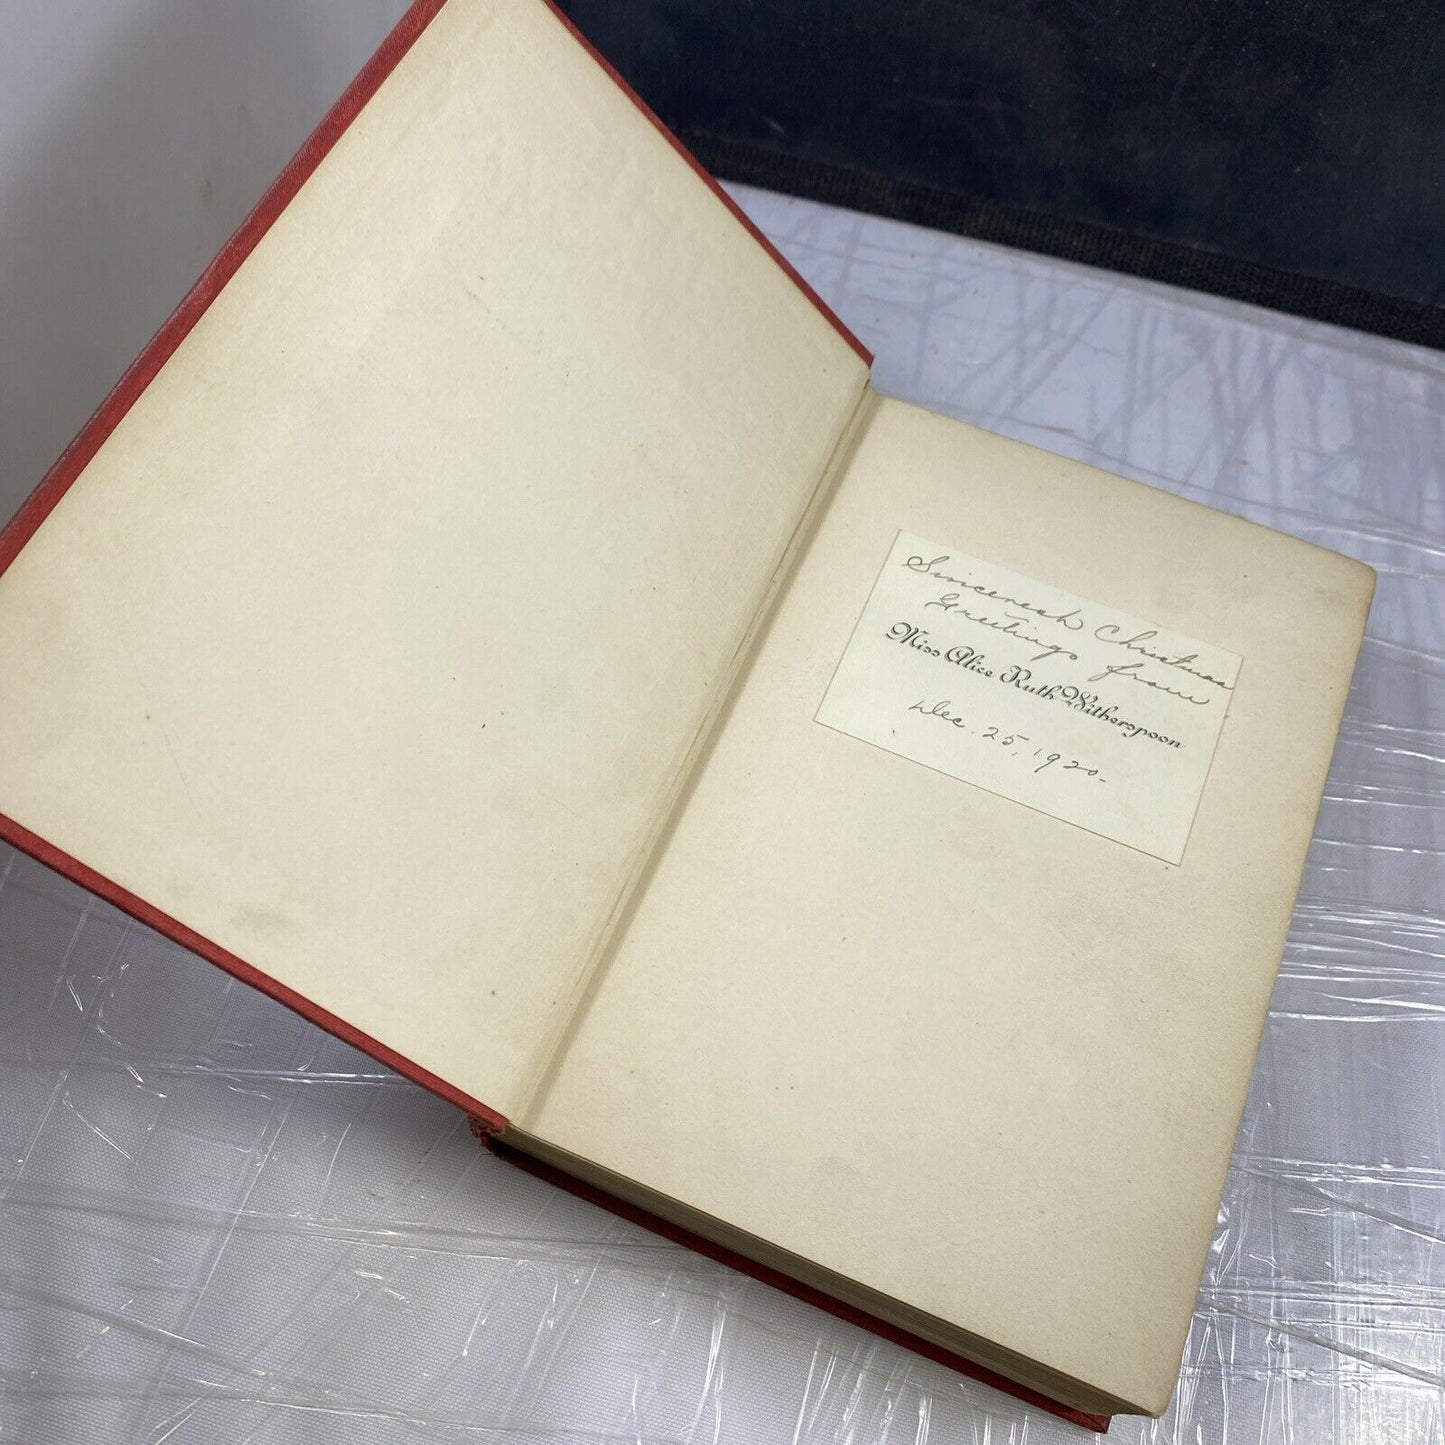 Sincerest Christmas
Greetings from
Miss Alice Ruth Witherspoon
Dec. 25, 1920.